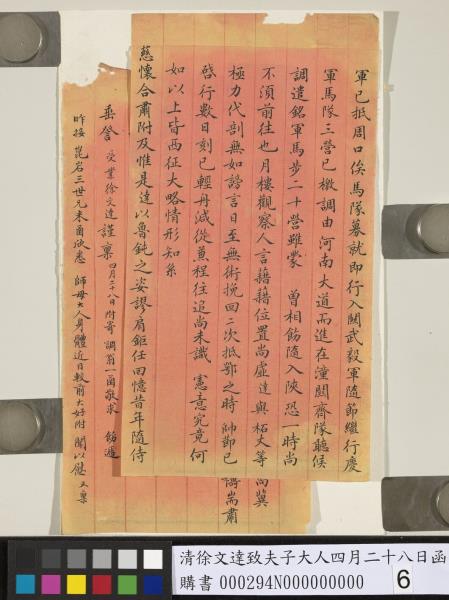 軍已抵周口俟馬隊募就即行入關武毅軍隨節繼行慶
軍馬隊三營已檄調由河南大道而進在潼關齊隊聽候
調遣銘軍馬步二十營雖蒙　曾相飭隨入陝恐一時尚
不須前往也月樓觀察人言藉藉位置尚虛達與柘丈等尚冀
極力代剖無如謗言日至無術挽回二次抵鄂之時　帥節已
啓行數日刻已輕舟減從兼程往追尚未識　憲意究竟何
如以上皆西征大略情形知系
慈懷合肅附及惟是達以魯鈍之姿謬肩鉅任回憶昔年隨侍
耑肅
垂詧　受業徐文達謹稟　四月二十八日附寄調翁一函敬求　飭遞
昨接　崑岩三世兄來函欣悉　師母大人身體近日較前大好附聞以慰　又稟
清徐文達致夫子大人四月二十八日函
購書 000294N000000000
6